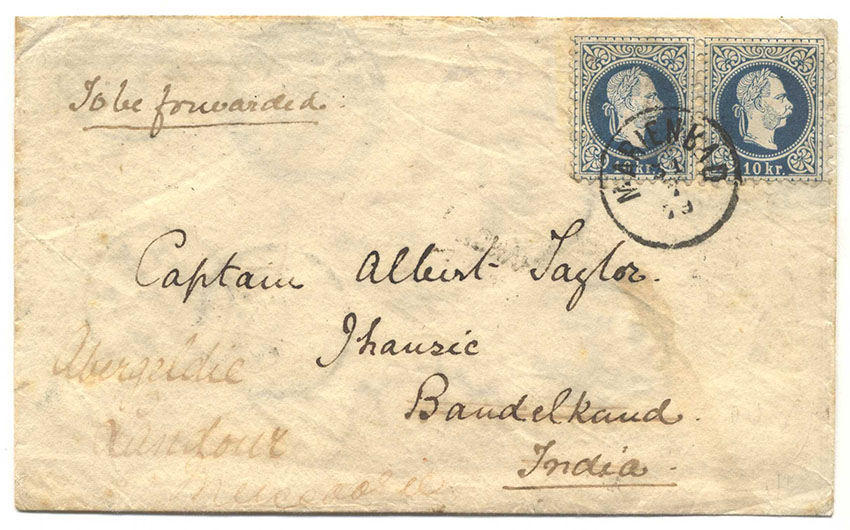 To be forwarded.
10 kr.
10 kr.
MARIENBAD
Captain Albert Taylor.
Jhansie
Bandelkand.
India.
Abergeldie
Landour
Mussoorie